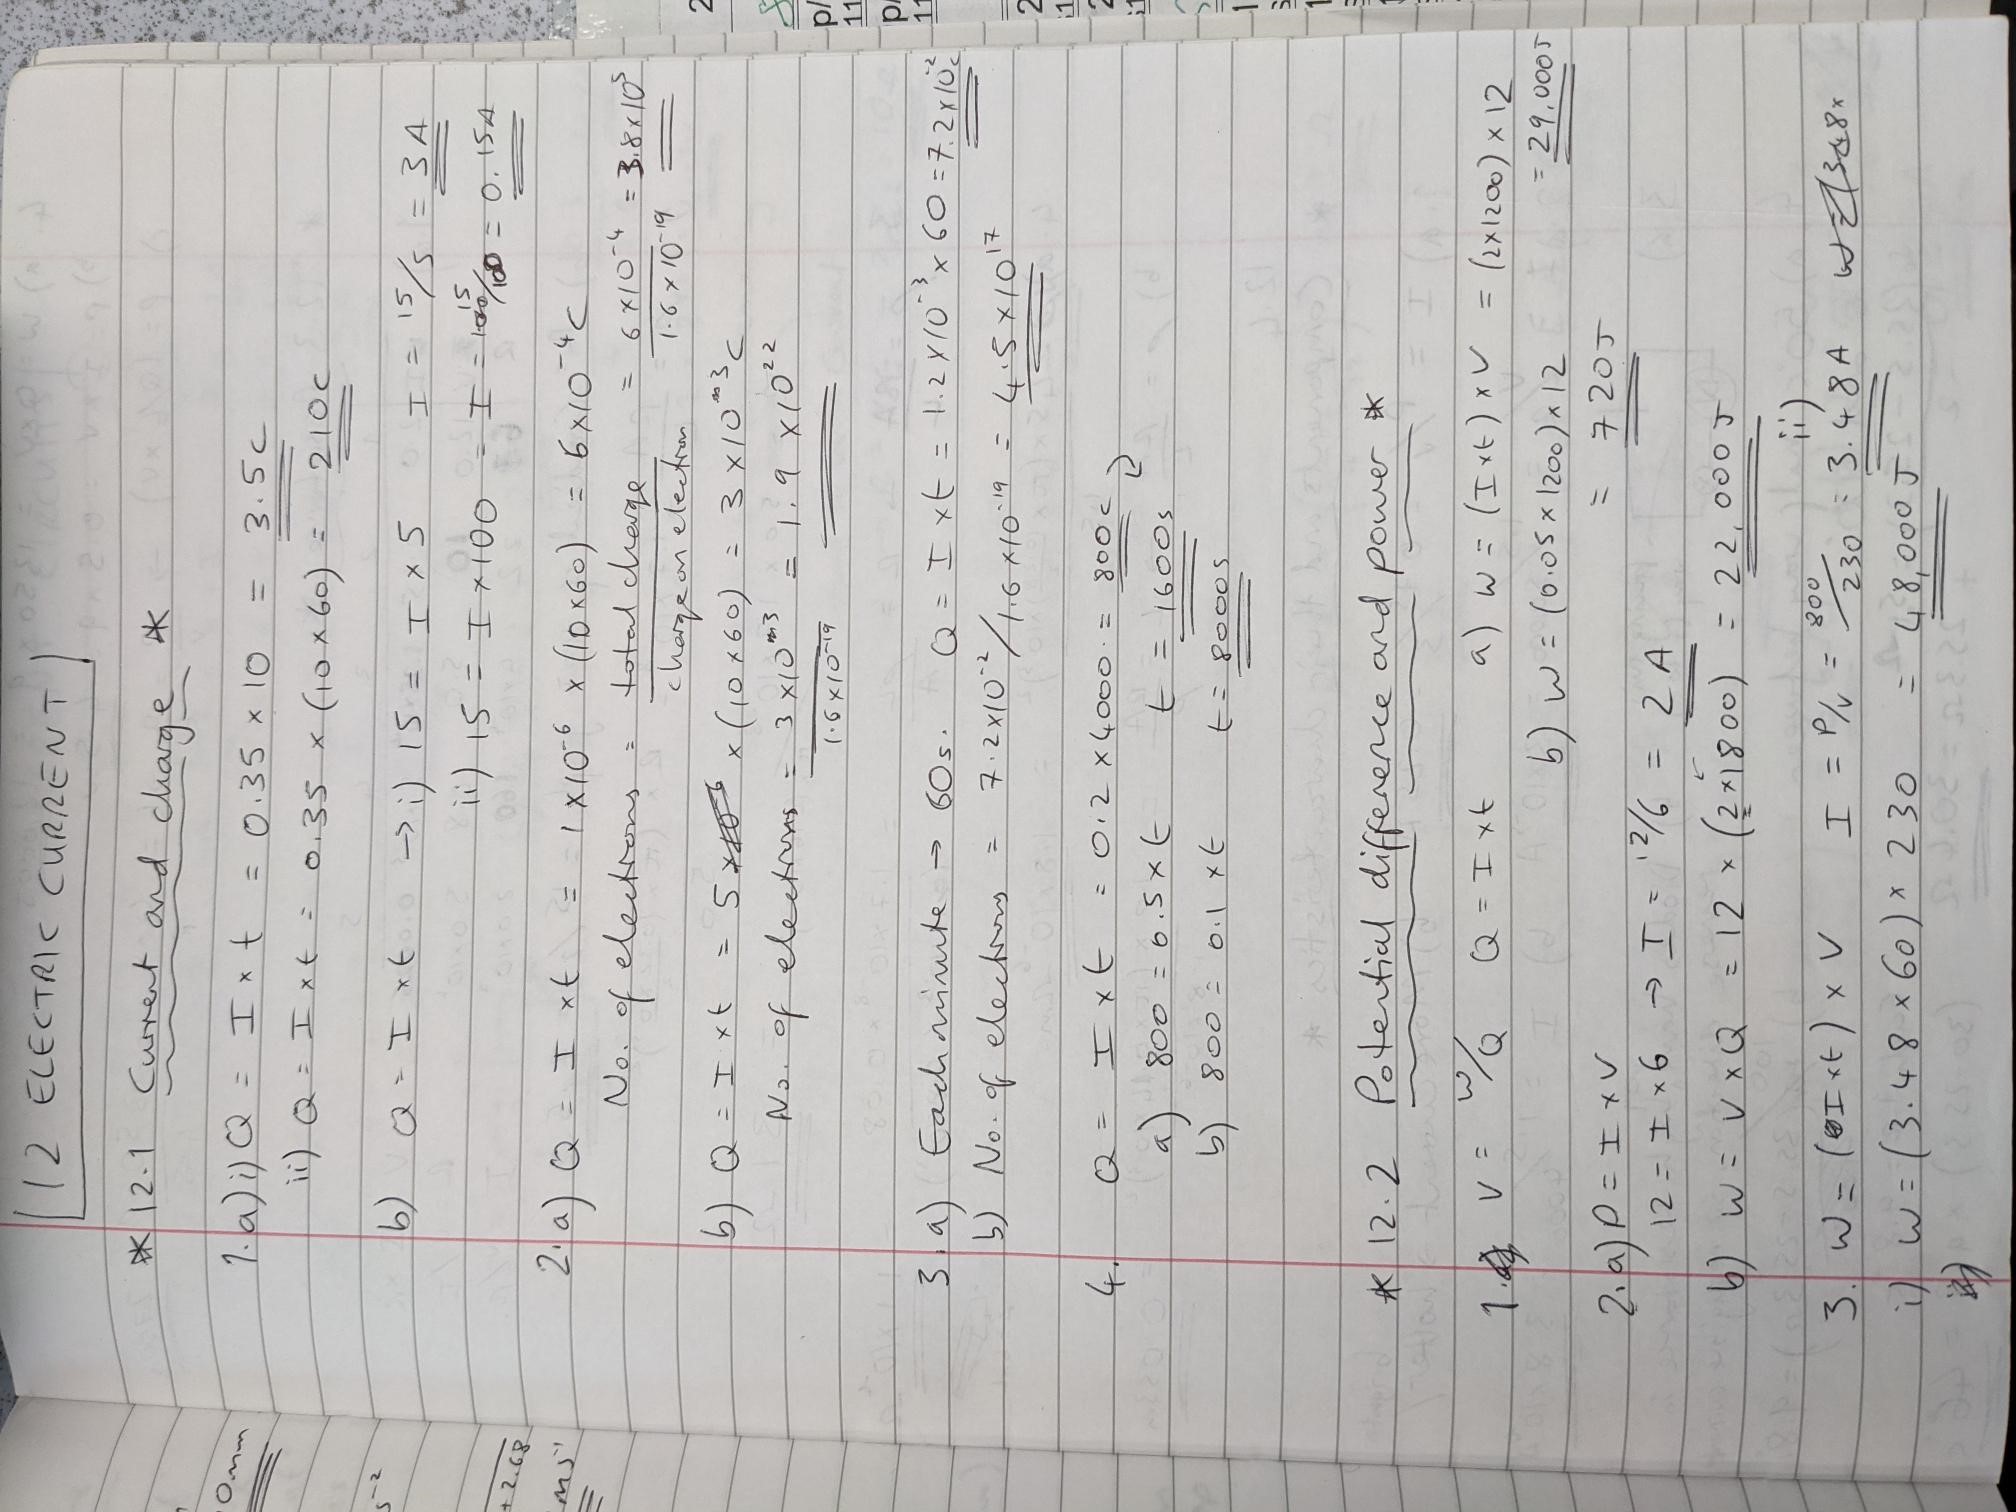 12 ELECTRIC CURRENT
* 12.1 Current and charge *
1. a) i) Q = I x t = 0.35 x 10 = 3.5C
ii) Q = I x t = 0.35 x (10 x 60) = 210C
b) Q = I x t → i) 15 = I x 5 I = 15/5 = 3A
ii) 15 = I x 100 = I = 15/100 = 0.15A
2. a) Q = I x t = 1 x 10⁻⁶ x (10 x 60) = 6 x 10⁻⁴ C
No. of electrons = total charge / charge on electron = 6 x 10⁻⁴ / 1.6 x 10⁻¹⁹ = 3.8 x 10⁵
b) Q = I x t = 5 x (10 x 60) = 3 x 10³ C
No. of electrons = 3 x 10³ / 1.6 x 10⁻¹⁹ = 1.9 x 10²²
3. a) Each minute → 60s. Q = I x t = 1.2 x 10⁻³ x 60 = 7.2 x 10⁻² C
b) No. of electrons = 7.2 x 10⁻² / 1.6 x 10⁻¹⁹ = 4.5 x 10¹⁷
4. Q = I x t = 0.2 x 4000. = 800C
a) 800 = 0.5 x t t = 1600s
b) 800 = 0.1 x t t = 8000s
* 12.2 Potential difference and power *
1. V = W/Q Q = I x t a) W = (I x t) x V = (2 x 1200) x 12
= 29,000J
b) W = (0.05 x 1200) x 12
= 720J
2. a) P = I x V
12 = I x 6 → I = 12/6 = 2A
b) W = V x Q = 12 x (2 x 1800) = 22,000J
3. W = (I x t) x V I = P/V = 800/230 = 3.48A
ii)
i) W = (3.48 x 60) x 230 = 48,000J
0mm
s⁻²
+2.68
ms⁻¹
2
p/
11
p/
11
2